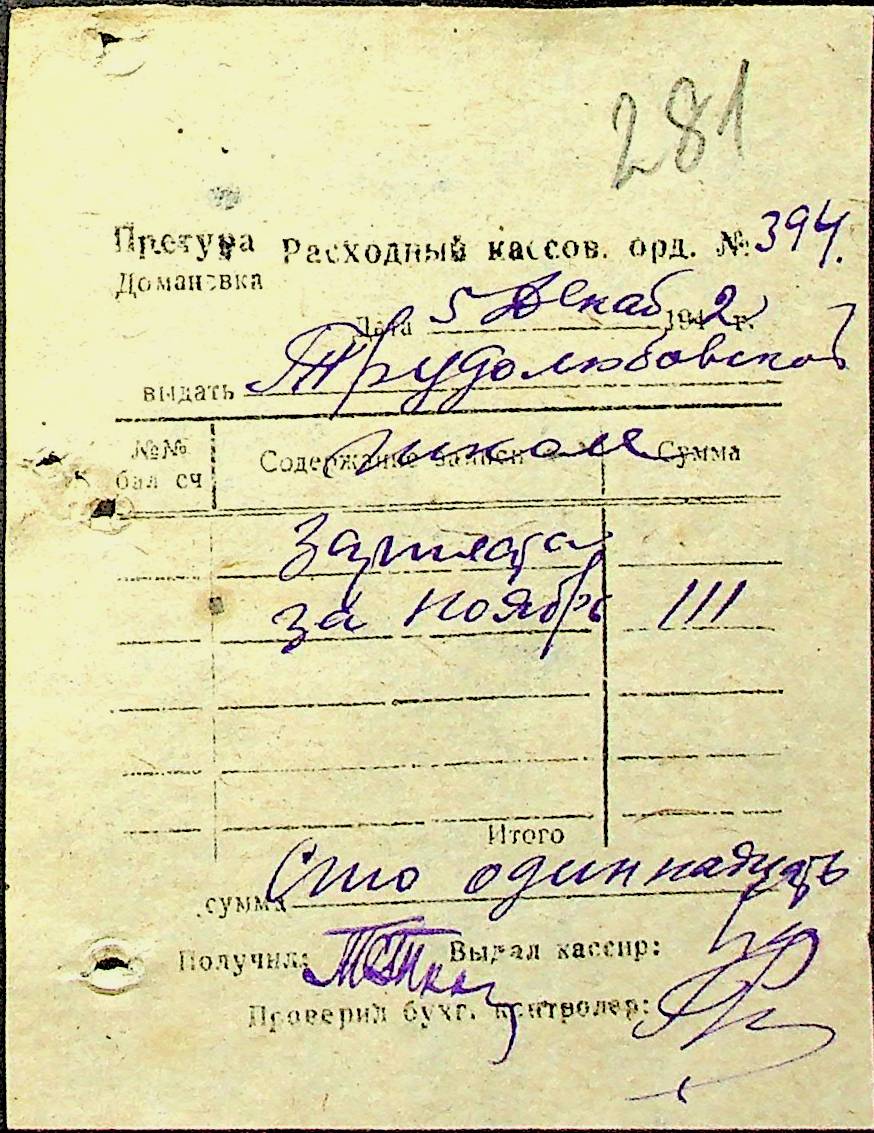 281
Претура Расходный кассов. орд. № 394.
Домановка
Дата 5 Декаб 1942 г.
выдать Трудолюбовской
школе
№№ Содержание записи Сумма
бал сч
Зарплата
за ноябрь 111
Итого
сумма Сто одиннадцать
Получил: Выдал кассир:
Проверил бухг. контролер: